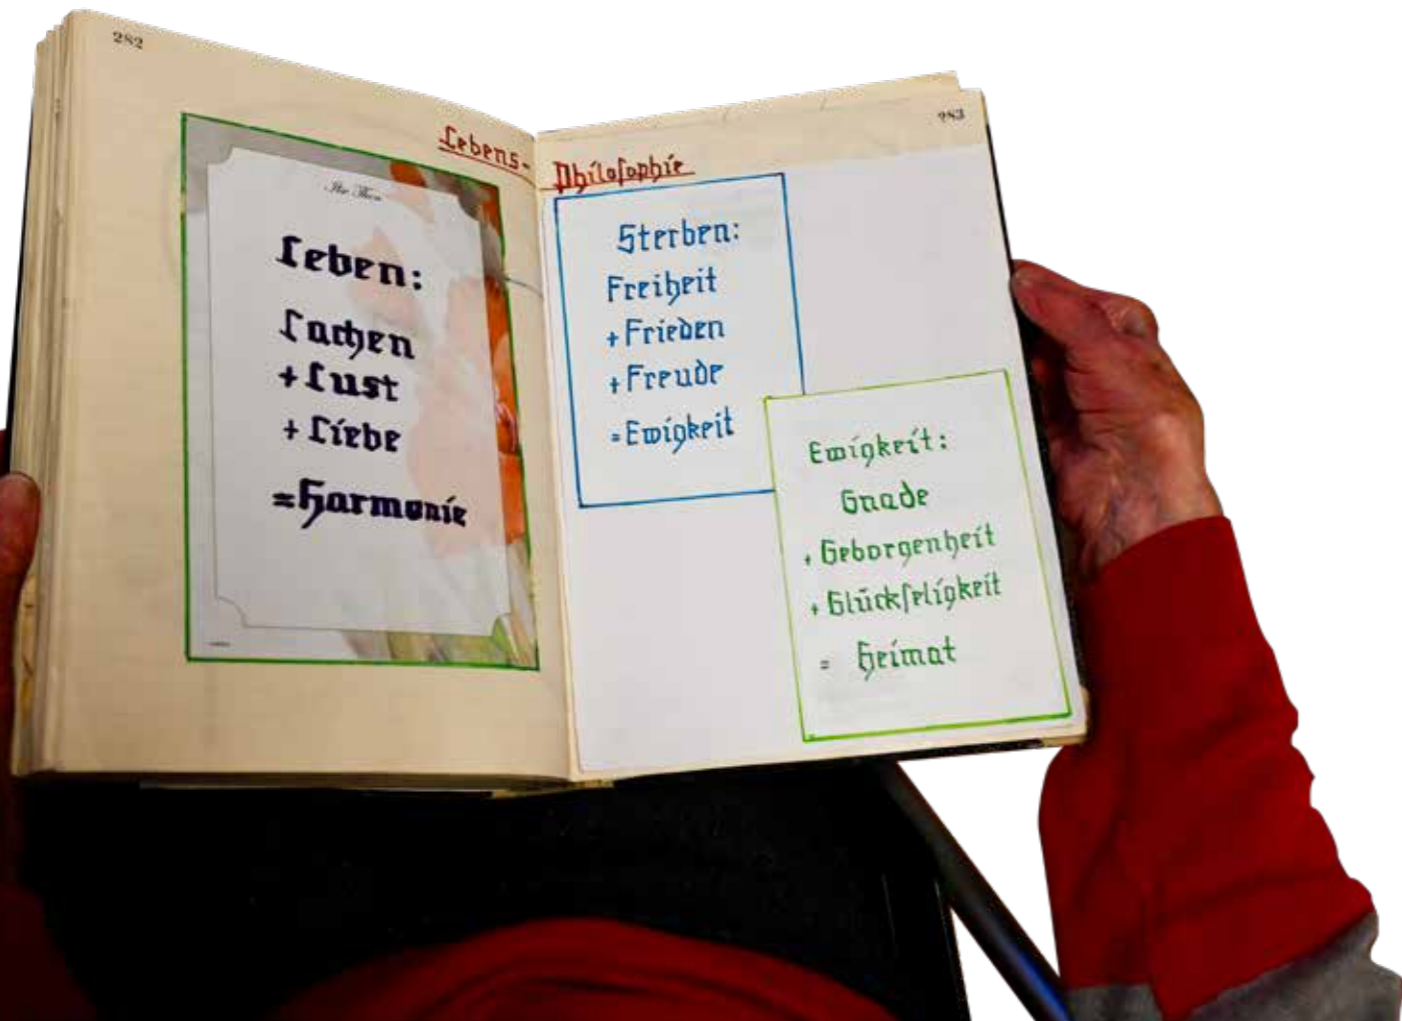 282
283
Lebens-
Philosophie
Leben:
Lachen
+ Lust
+ Liebe
= Harmonie
Sterben:
Freiheit
+ Frieden
+ Freude
= Ewigkeit
Ewigkeit:
Gnade
+ Geborgenheit
+ Glückseligkeit
= Heimat